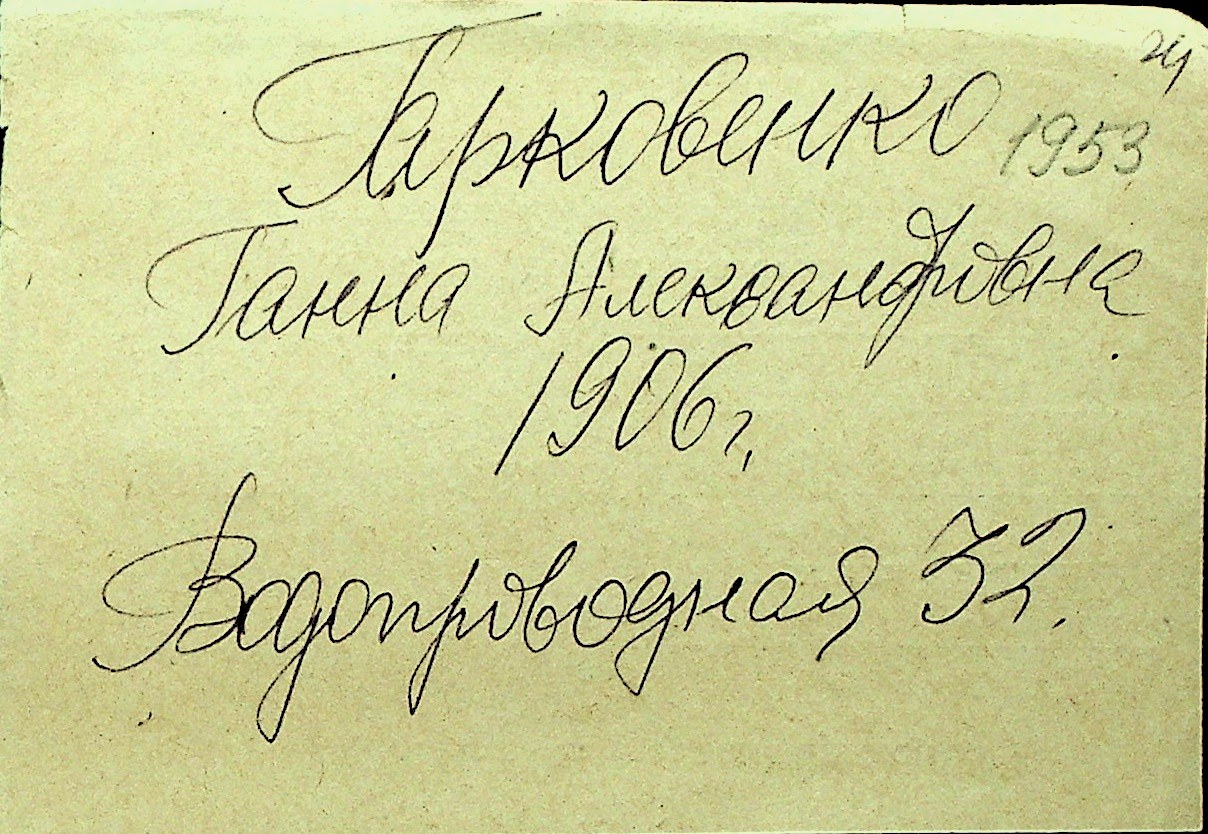 24
Гарковенко 1953
Ганна Александровна
1906 г.
Водопроводная 32.